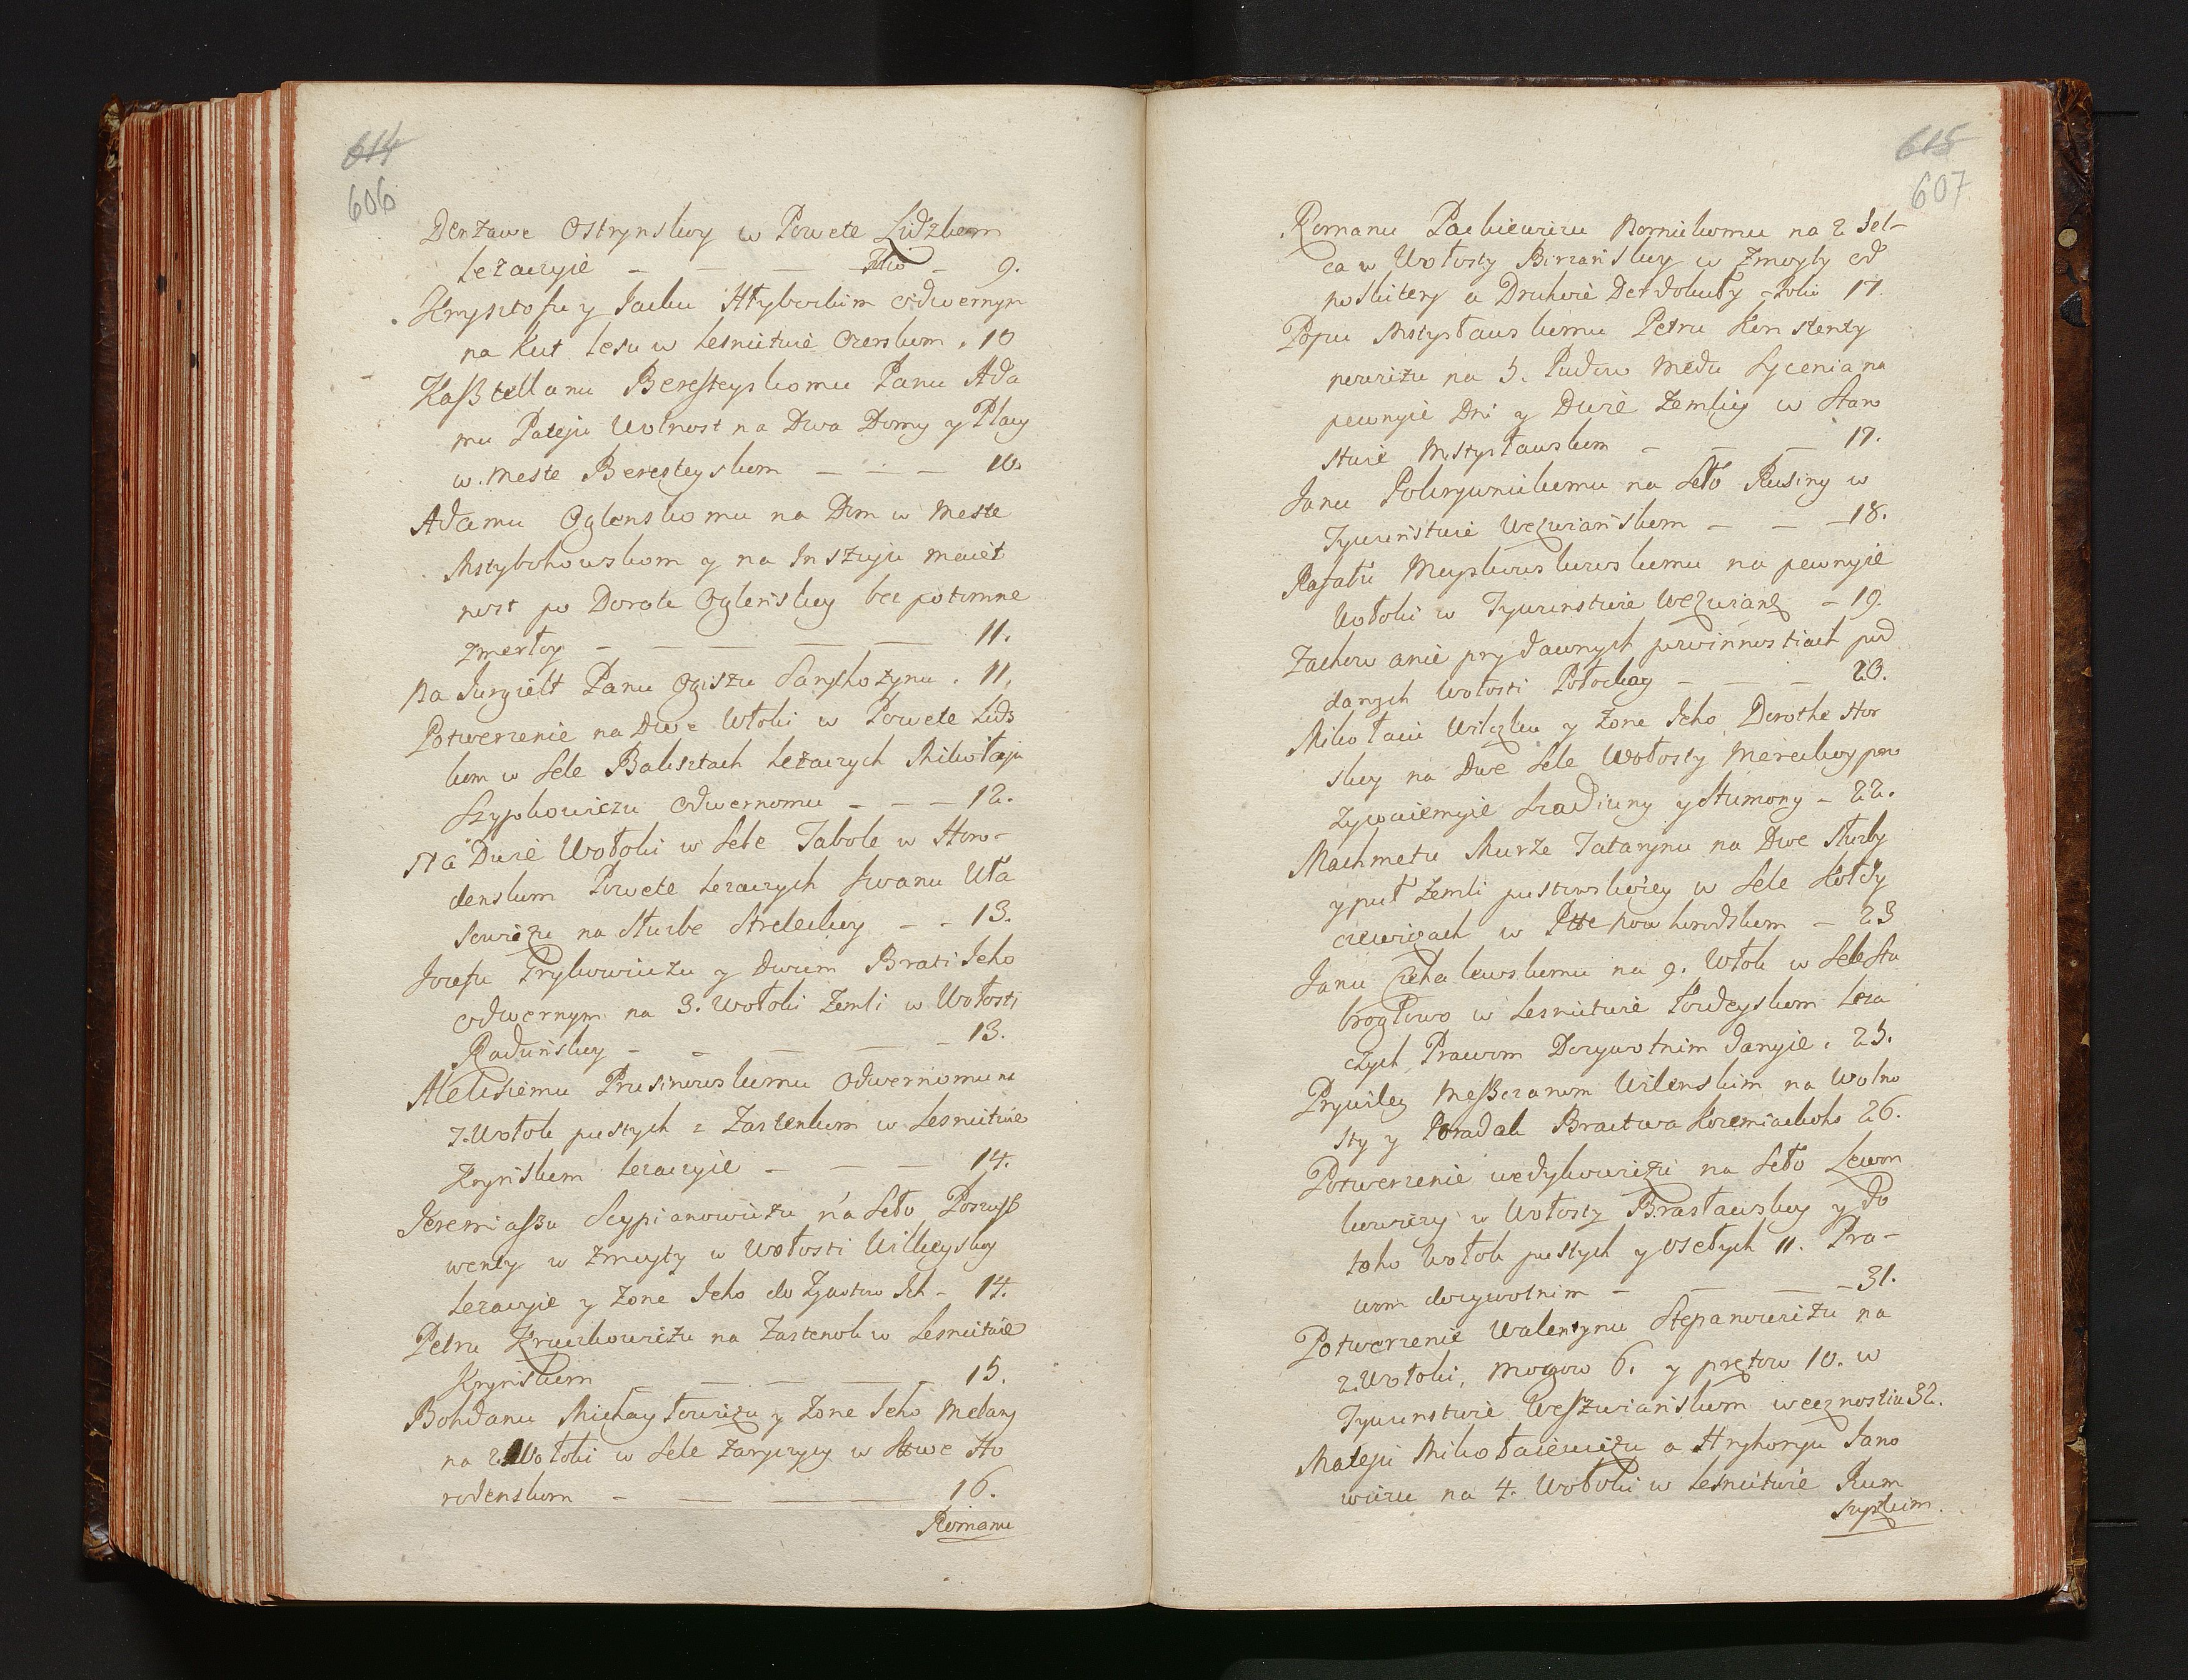 614
606
Derżawe Ostrynskoy w Powete Lidzkom
leżaczyie — — — folio — 9.
Krysztofu y Jacku Hłybockim odwernym
na Kut lesu w Lesnictwie Ozerskom . 10
Kaßtellanu Beresteyskomu Panu Ada
mu Pateju Wolnost na Dwa Domy y Placy
w meste Beresteyskom — — — 10.
Adamu Oglenskomu na Dom w meste
Mstybohowskom y na Inszuju maiet
nost po Dorote Oglenskoy bez potomne
zmerłoy — — — — — 11.
Na Jurgielt Panu Ogiszu Saryhożynu . 11.
Potwerzenie na Dwe Włoki w Powete Lids
kom w Sele Baksztach Leżaczych Mikołaju
Szypkowiczu Odwernomu — — — 12.
Na Dwie Wołoki w Sele Tabole w Horo-
denskom Powete Lezaczych Iwanu Uła
sowiczu na Służbe Streleckoy — — 13.
Jozefu Hrybowiczu y Dwum Brati Jeho
odwernym na 3. Wołoki Zemli w Wołosti
Raduńskoy — — — — 13.
Aleksiemu Prusinowskomu Odwernomu na
7. Wołok pustych z Zastenkom w Lesnictwie
Krynskom lezaczyie — — — 14.
Jeremiaßu Scypianowiczu na Seło Poszuß
wenty w Zmuyty w Wołosti Wilkeyskoy
lezaczyie y Zone Jeho do Zywotow Ich — 14.
Petru Kruczkowiczu na Zastenok w Lesnictwie
Krynskom — — — — 15.
Bohdanu Michayłowiczu y Zone Jeho Melany
na 2. Wołoki w Sele Zaryczy w Stwe Ho
rodenskom — — — — 16.
Romanu
615
607
Romanu Packiewiczu Kornickomu na 2 Sel-
ca w Wołosty Birzańskoy w Zmoyty od
poskitery a Druhoie Det dokuty — Folio 17.
Popu Mstysławskomu Petru Konstenty
nowiczu na 5. Pudow Medu Sycenia na
pewnyie Dni y Dwie Zemlicy w Staro
stwie Mstysławskom — — — 17.
Janu Pokrywnickomu na Seło Rusiny w
Tywunstwie Wezwiańskom — — —18.
Rafału Muyskowskomu na pewnyie
Wołoki w Tywunstwie Wezwianę — 19.
Zachowanie pry dawnych powinnostiach pod
danych Wołosti Połockoy — — — 20.
Mikołaiu Wilczku y Zone Jeho Dorothe Hor
skoy na Dwe Sele Wołosty Mereckoy pro
zywaiemyie Hradiuny y Stumony — 22.
Machmetu Murze Tatarynu na Dwe Służby
y puł Zemli pustowskoiey w Sele Kołdy
czewiczach w Ptte Nowhorodskom — 23
Janu Chalewskomu na 9. Włok w Sele Sta
brogłowo w Lesnictwie Łowdeyskom Leza
czych Prawom Dozywotnim danyie . 25.
Prywiley Meßczanom Wilenskim na Wolno
sty y Poradak Bractwa Kozemiackoho 26.
Potwerzenie Wedykowiczu na Seło Lewon
kowiczy w Wołosty Brasławskoy y do
toho Wołok pustych y oselych 11. Pra-
wom dozywotnim — — — —31.
Potwerzenie Walentynu Stepanowiczu na
2. Wołoki, Morgow 6. y prętow 10. w
Tywunstwie Weszwiańskom wecznostiu 32.
Mateju Mikołaiewiczu a Hryhoryu Jano
wiczu na 4. Wołoki w Lesnictwie Rum
szyszkim.